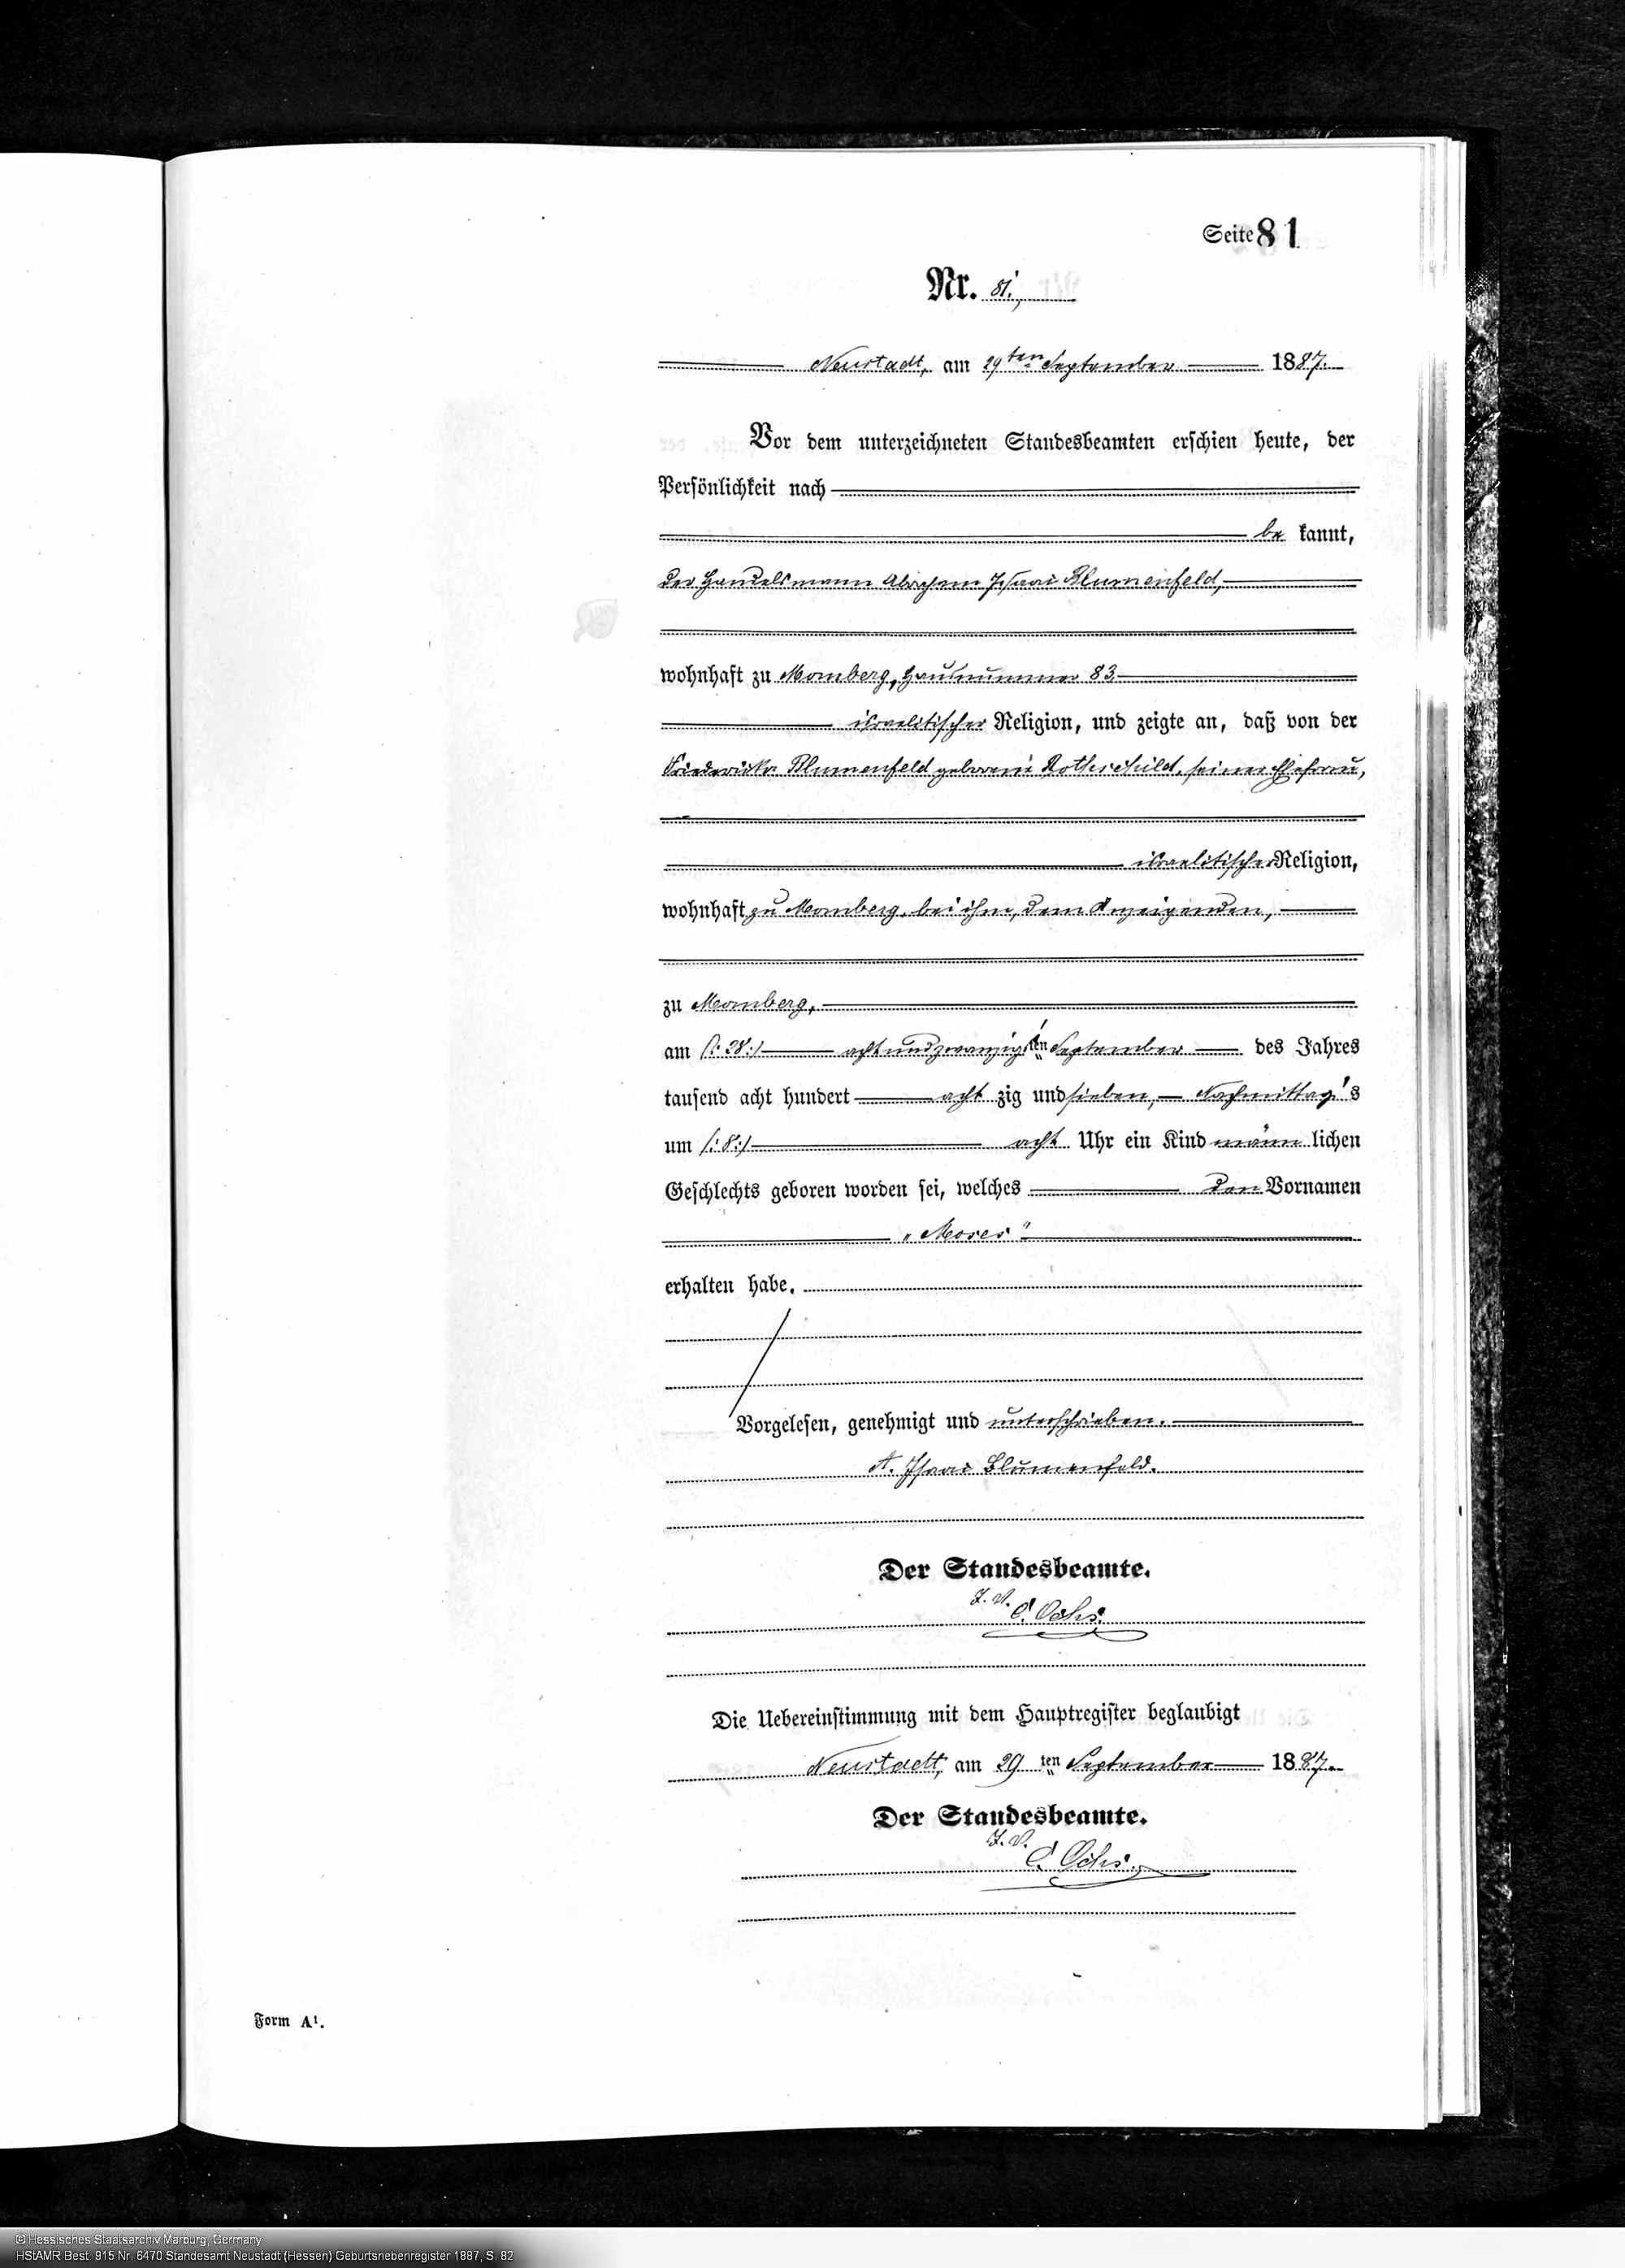 Seite 81
Nr. 81.,
Neustadt, am 29ten September 1887.
Vor dem unterzeichneten Standesbeamten erschien heute, der
Persönlichkeit nach
be kannt,
der Handelsmann Abraham Isaac Blumenfeld,
wohnhaft zu Momberg, Hausnummer 83
israelitischer Religion, und zeigte an, daß von der
Friedericke Blumenfeld geborene Rothschild, seiner Ehefrau,
israelitischer Religion,
wohnhaft zu Momberg, bei ihm, dem Anzeigenden,
zu Momberg,
am (:28:) achtundzwanzigsten September des Jahres
tausend acht hundert acht zig und sieben, Nachmittags
um (:8:) acht Uhr ein Kind männ lichen
Geschlechts geboren worden sei, welches den Vornamen
„Moses"
erhalten habe.
Vorgelesen, genehmigt und unterschrieben.
A. Isaac Blumenfeld.
Der Standesbeamte.
I. V.
C. Ochs.
Die Uebereinstimmung mit dem Hauptregister beglaubigt
Neustadt, am 29 ten September 1887.
Der Standesbeamte.
I. V.
C. Ochs.
Form A¹.
© Hessisches Staatsarchiv Marburg, Germany
HStAMR Best. 915 Nr. 6470 Standesamt Neustadt (Hessen) Geburtsnebenregister 1887, S. 82